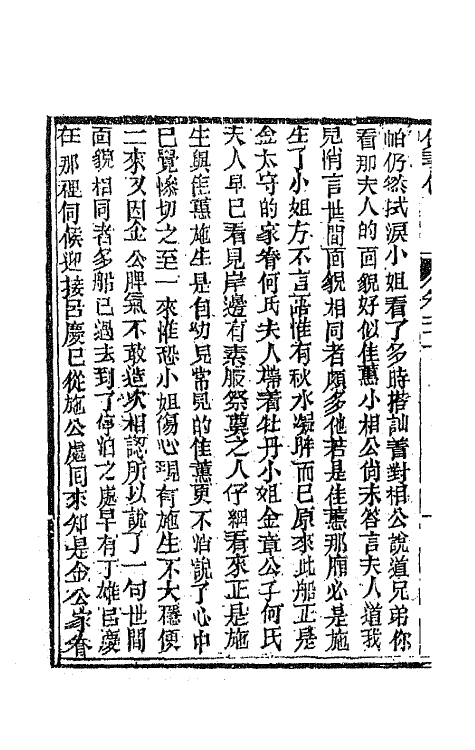 帕仍然拭淚小姐看了多時搭訕着對相公說道兄弟你
看那夫人的面貌好似佳蕙小相公尙未答言夫人道我
兒悄言世間面貌相同者頗多他若是佳蕙那廂必是施
生了小姐方不言語惟有秋水凝眸而已原來此船正是
金太守的家眷何氏夫人帶着牡丹小姐金章公子何氏
夫人早已看見岸邊有素服祭奠之人仔細看來正是施
生與佳蕙施生是自幼兒常見的佳蕙更不怕說了心中
已覺慘切之至一來惟恐小姐傷心現有施生不大穩便
二來又因金公脾氣不敢造次相認所以說了一句世間
面貌相同者多船已過去到了停泊之處早有丁雄呂慶
在那裡伺候迎接呂慶已從施公處回來知是金公家眷